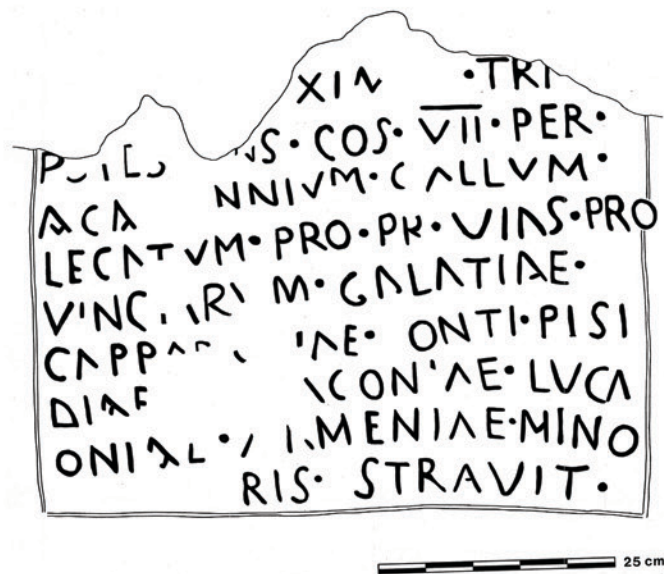 XIN ·TRI
NS·COS·VII·PER·
ACA NNIVM·CALLVM·
LECATVM·PRO·PR·VIAS·PRO
VINC M·GALATIAE·
CAPP IAE· ONTI·PISI
DIAE CONIAE·LVCA
ONIAL· MENIAE·MINO
RIS·STRAVIT·
25 cm